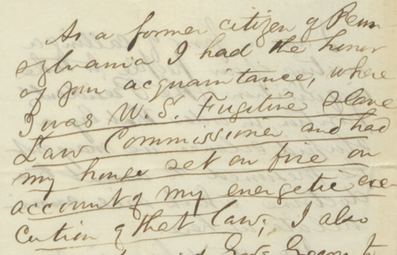 As a former citizen of Penn-
sylvania I had the honor
of your acquaintance, where
I was U.S. Fugitive slave
Law Commissioner and had
my house set on fire on
account of my energetic exe-
cution of that law; I also
Gov. Geary to